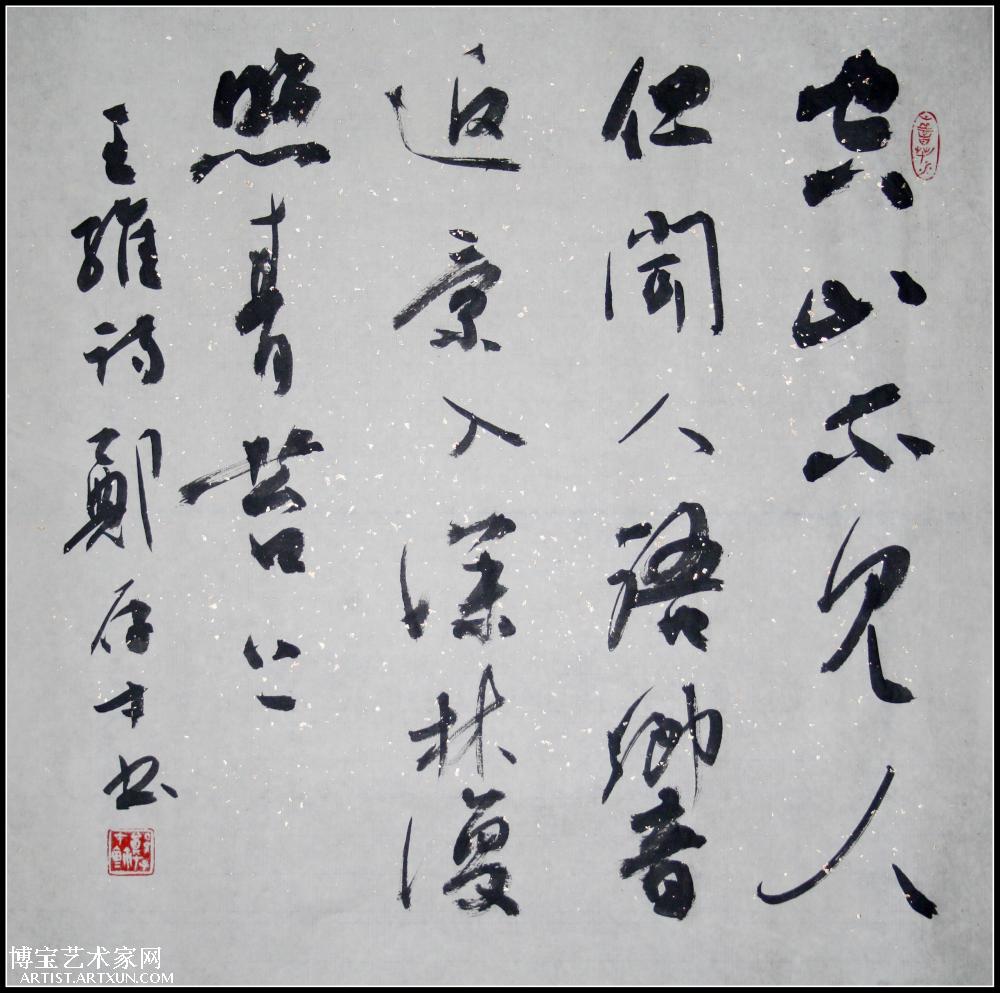 空山不見人
但聞人語響
返景入深林復
照青苔上
王維詩鄭存才書
博宝艺术家网
ARTIST.ARTXUN.COM